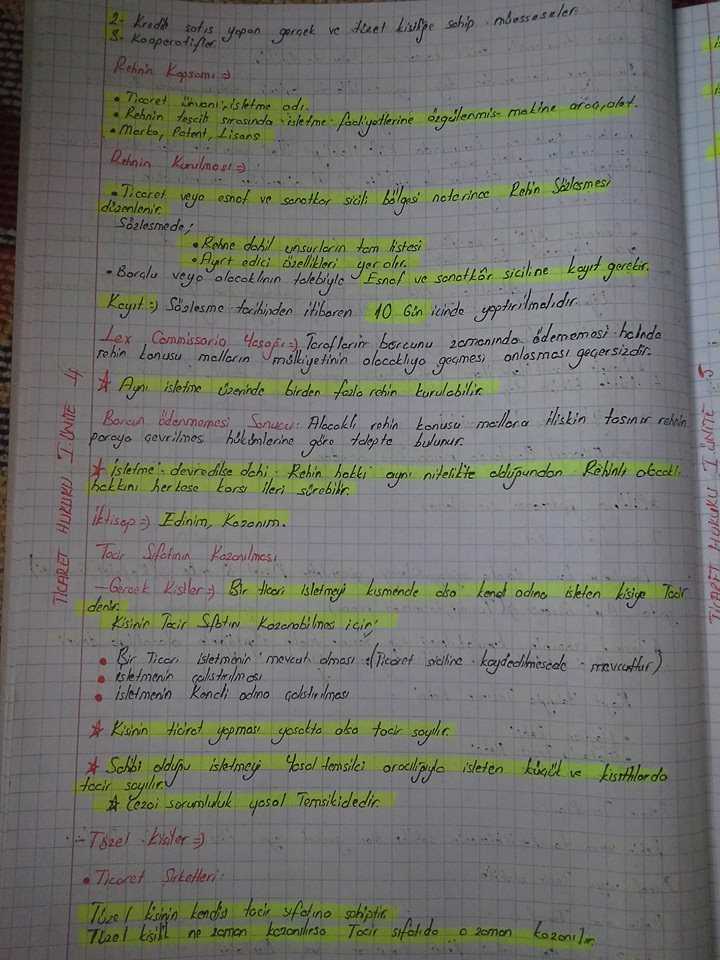 2- Kredili satış yapan gerçek ve tüzel kişiliğe sahip müesseseler.
3- Kooperatifler.
Rehnin Kapsamı =>
• Ticaret ünvanı, işletme adı.
• Rehnin tescili sırasında işletme faaliyetlerine özgülenmiş makine araç, alet.
• Marka, Patent, Lisans
Rehnin Kurulması =>
• Ticaret veya esnaf ve sanatkar sicili bölgesi noterince Rehin Sözleşmesi
düzenlenir.
Sözleşmede;
• Rehne dahil unsurların tam listesi
• Ayırt edici özellikleri yer alır.
• Borçlu veya alacaklının talebiyle Esnaf ve sanatkâr siciline kayıt gerekir.
Kayıt => Sözleşme tarihinden itibaren 10 Gün içinde yaptırılmalıdır.
Lex Commissoria Yasağı => Tarafların borcunu zamanında ödememesi halinde
rehin konusu malların mülkiyetinin alacaklıya geçmesi anlaşması geçersizdir.
☆ Aynı işletme üzerinde birden fazla rehin kurulabilir.
Borcun ödenmemesi Sonucu: Alacaklı rehin konusu mallara ilişkin taşınır rehnin
paraya çevrilmesi hükümlerine göre talepte bulunur.
☆ İşletme devredilse dahi Rehin hakkı ayni nitelikte olduğundan Rehinli alacaklı
hakkını herkese karşı ileri sürebilir.
İktisap => Edinim, Kazanım.
Tacir Sıfatının Kazanılması
- Gerçek Kişiler => Bir ticari işletmeyi kısmende olsa kendi adına işleten kişiye Tacir
denir.
Kişinin Tacir Sıfatını Kazanabilmesi için;
• Bir Ticari işletmenin mevcut olması (Ticaret siciline kaydedilmesede mevcuttur)
• işletmenin çalıştırılması
• işletmenin Kendi adına çalıştırılması
☆ Kişinin ticaret yapması yasakta olsa tacir sayılır.
☆ Sahibi olduğu işletmeyi Yasal temsilci aracılığıyla işleten küçük ve kısıtlılarda
tacir sayılır.
☆ Cezai sorumluluk yasal Temsilcidedir.
- Tüzel Kişiler =>
• Ticaret Şirketleri:
Tüzel kişinin kendisi tacir sıfatına sahiptir.
Tüzel kişilik ne zaman kazanılırsa Tacir sıfatıda o zaman kazanılır.
TİCARET HUKUKU I. ÜNİTE 4
TİCARET HUKUKU I ÜNİTE 5